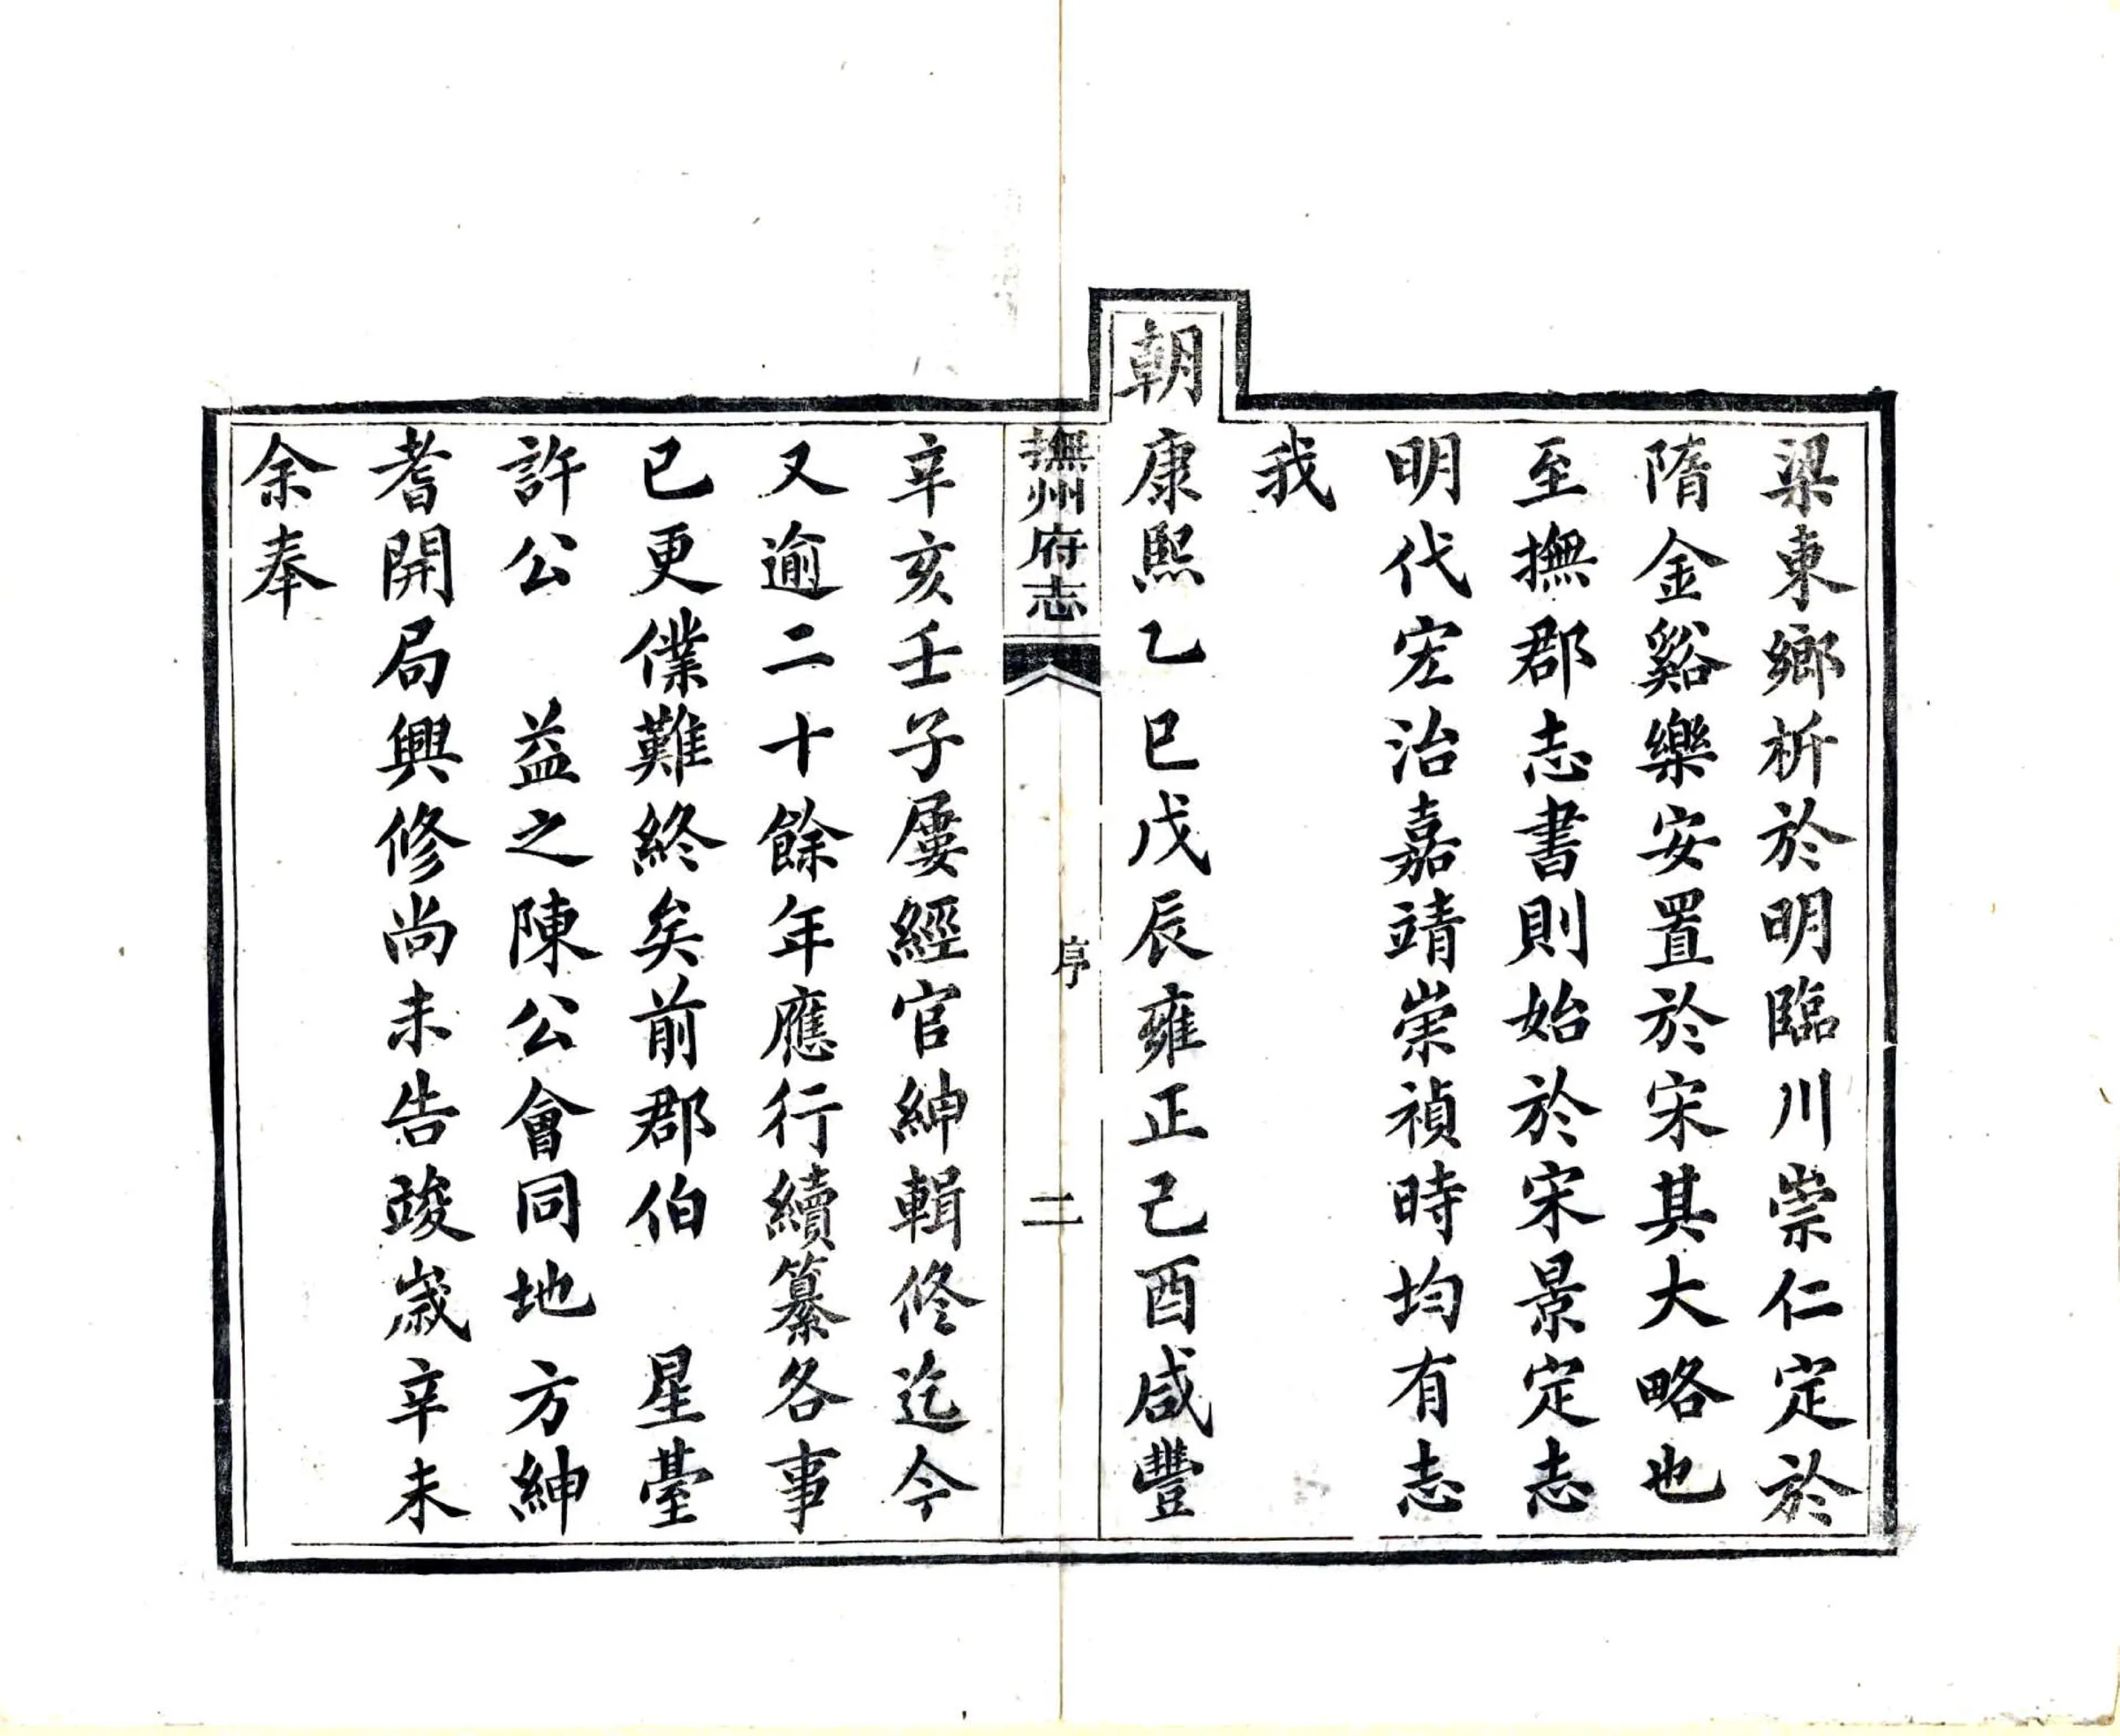 梁東鄉析於明臨川崇仁定於
隋金谿樂安置於宋其大略也
至撫郡志書則始於宋景定志
明代宏治嘉靖崇禎時均有志
我
朝康熙乙巳戊辰雍正己酉咸豐
撫州府志
序
二
辛亥壬子屢經官紳輯修迄今
又逾二十餘年應行續纂各事
已更僕難終矣前郡伯 星臺
許公 益之陳公會同地方紳
耆開局興修尚未告竣嵗辛未
余奉